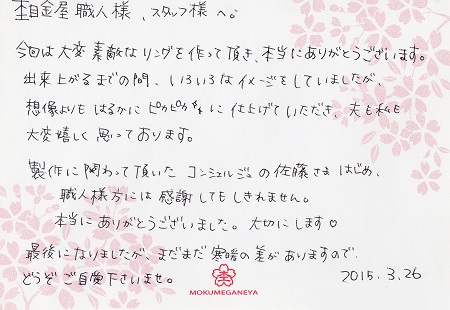 杢目金屋 職人様、スタッフ様へ。
今回は大変素敵なリングを作って頂き、本当にありがとうございます。
出来上がるまでの間、いろいろなイメージをしていましたが、
想像よりもはるかにピカピカに仕上げていただき、夫も私も
大変嬉しく思っております。
製作に関わって頂いたコンシェルジュの佐藤さまはじめ、
職人様方には感謝してもしきれません。
本当にありがとうございました。大切にします♡
最後になりましたが、まだまだ寒暖の差がありますので、
どうぞご自愛下さいませ。
2015.3.26
MOKUMEGANEYA